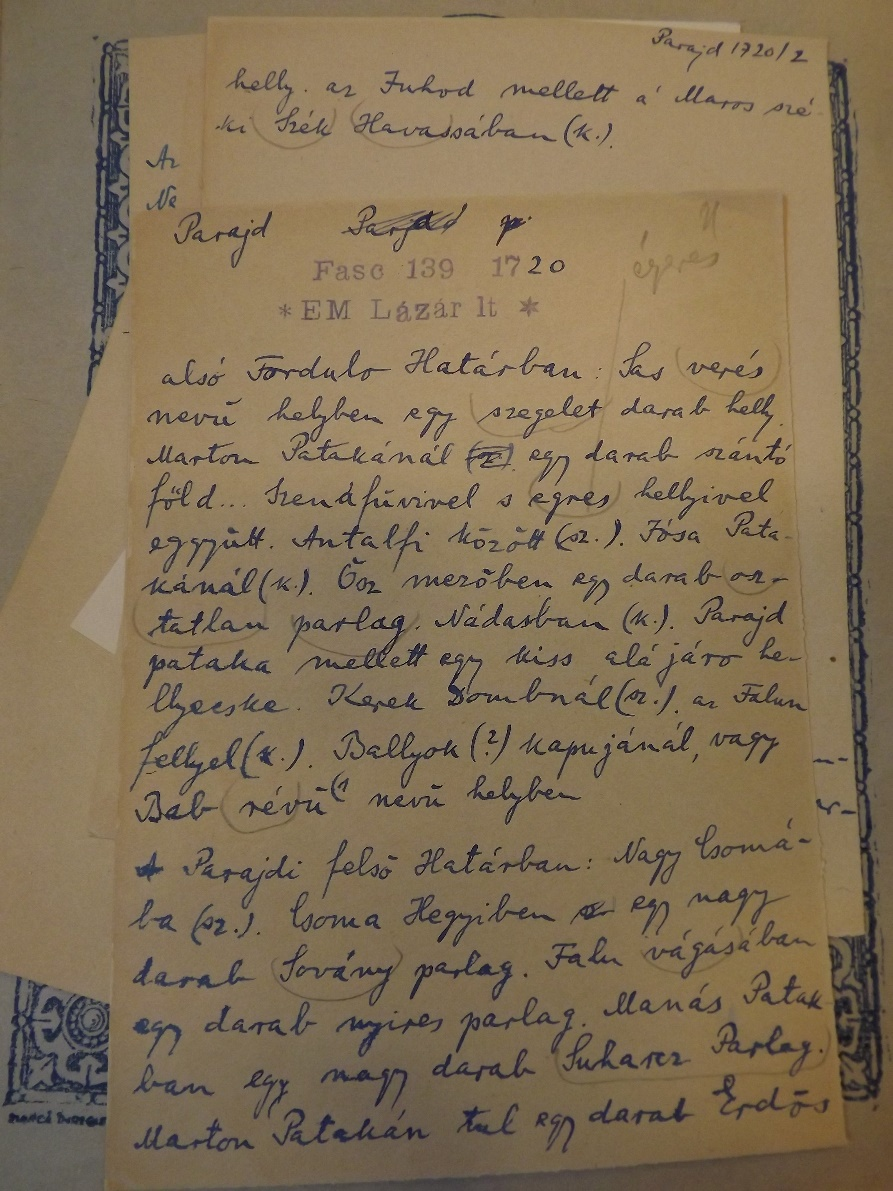 Parajd 1720/2
helly. az Juhod mellett á Maros szé-
ki Szék Havassában (k.).
Az
Ne
Parajd Parajd p.
Fasc 139 1720
*EM Lázár lt *
égeres
alsó Fordulo Határban: Sas verés
nevű helyben egy szegelet darab helly.
Marton Patakánál (sz) egy darab szántó
föld... Szénafűvivel s egres hellyivel
eggyütt. Antalfi között (sz.). Jósa Pata-
kánál (k.). Ősz mezőben egy darab osz-
tatlan parlag. Nádasban (k.). Parajd
pataka mellett egy kiss alá járo he-
llyecske. Kerek Dombnál (sz.). az Falun
fellyel (k.). Ballyok (?) kapujánál, vagy
Bab révű (1 nevű helyben
A Parajdi felső Határban: Nagy Csomá-
ba (sz.). Csoma Hegyiben egy nagy
darab Sovány parlag. Falu vágásában
egy darab nyires parlag. Manás Patak-
ban egy nagy darab Suharcz Parlag.
Marton Patakán tul egy darab Erdős